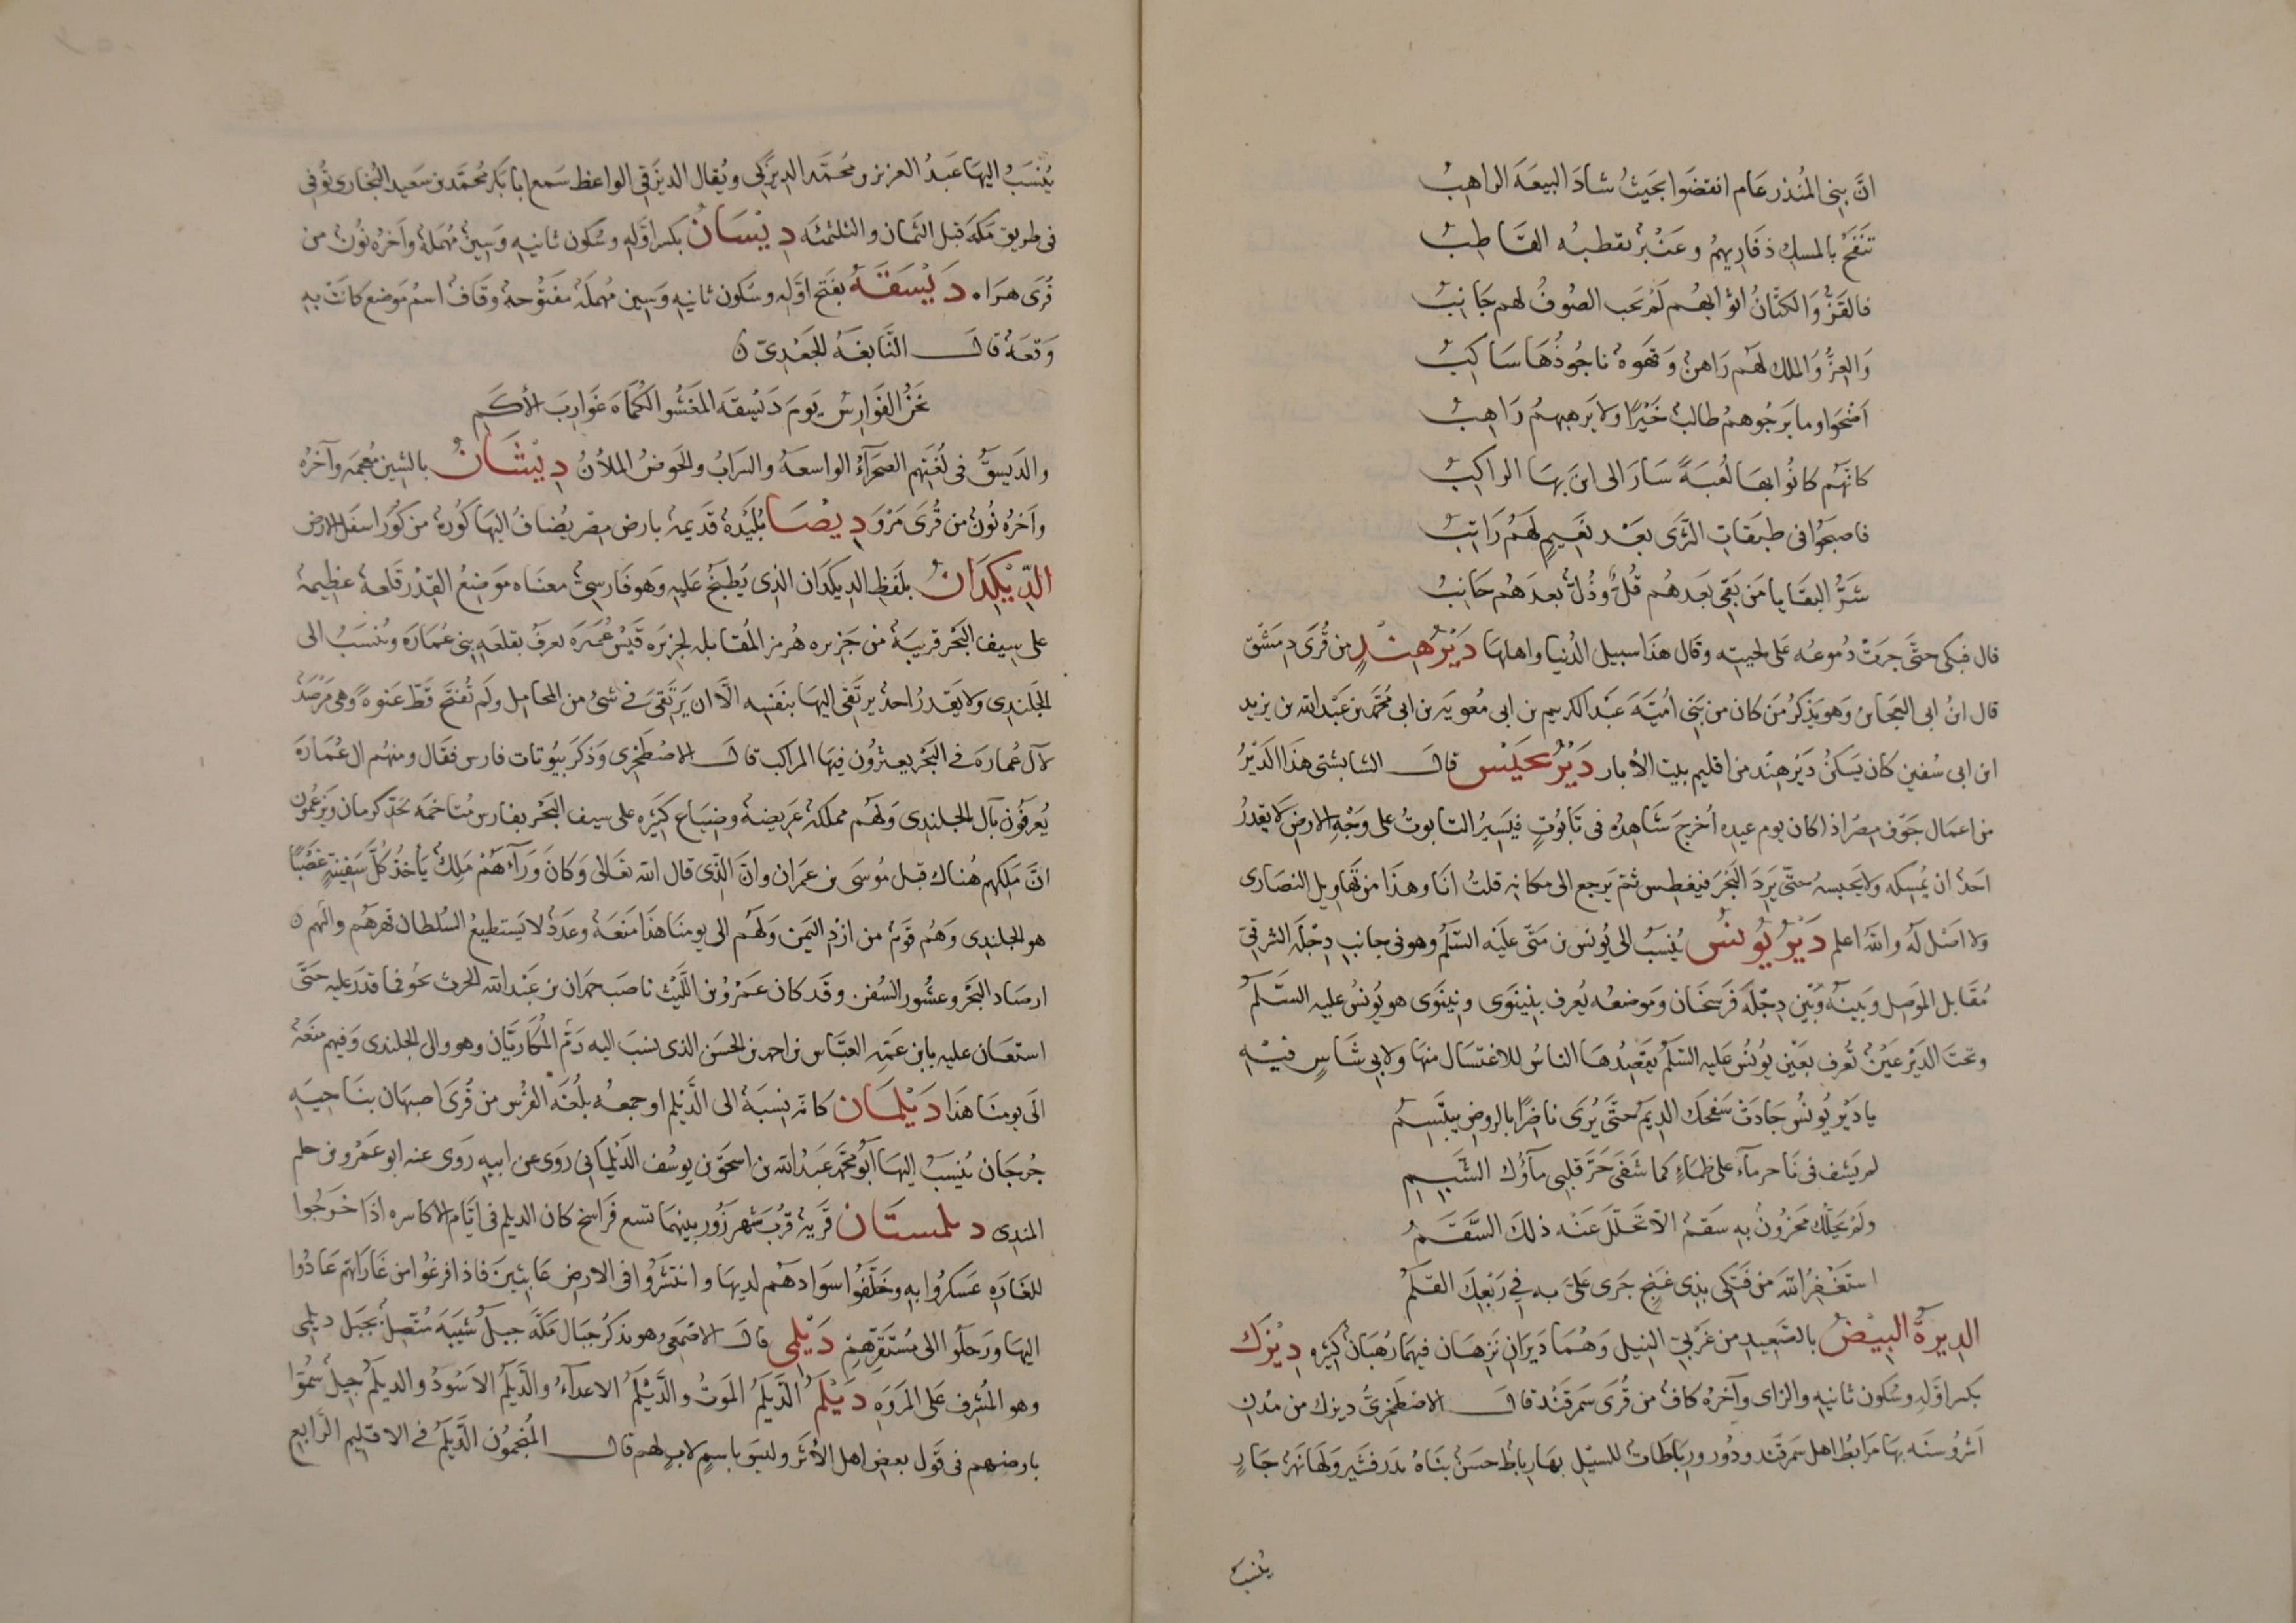 انّ بنى المُنذر عَام انقضَوا بحَيثُ شادَ البيعَةَ الراهِبُ
تَنفَحُ بالمسكِ ذفَارِيهمُ وعَنْبرٌ يقطبُه القَاطِبُ
فالقَزُّ وَالكَتّانُ اثوابهُم لَمْ يَجب الصُوفُ لهم جَانِبُ
وَالعِزُّ وَالملك لهُم رَاهنٌ وَقهوَهٌ ناجُوذُهَا سَاكِبُ
اَضْحَوا وما يَرجُوهمُ طالبٌ خَيْرًا ولا يَرهبهمُ رَاهِبُ
كانّهُم كانُوا بهَا لُعبَةً سَارَ الى اين بهَا الراكِبُ
فاصبحُوا فى طبَقاتِ الثَرى بَعْد نَعيمٍ لَهُمُ رَاتِبُ
شَرُّ البقَايا مَن بَقِىَ بَعدهُم قُلٌّ وذُلٌّ بعدَهُم خَائِبُ
قال فبكى حتَّى جرَتْ دُموعُه عَلى لحيتِه وقال هَذا سبيل الدُنيا واهلهَا دَيْرُ هِنْدٍ من قُرَى دمَشْق
قال ابنُ ابى العجائز وَهو يَذكرُ مَن كان من بَنِى اُميَّةَ عَبْد الكريم بن ابى مُعوية بن ابى مُحَمّد بن عَبْد الله بن يزيد
ابن ابى سُفين كان يَسكُنُ دَيْرَ هِنْد من اقليم بيت الأبار دَيْرُ يحَنِّس قال الشابشتى هَذا الدَيْرُ
من اعمَال جَوف مِصْر اذا كان يوم عيدِه اُخرجَ شَاهِدُه فى تَابُوتٍ فيَسِيرُ التابوتُ على وَجْهِ الارض لا يقدرُ
احَدٌ ان يُمسِكه ولا يَحبسهُ حتّى يَرِدَ البَحْرَ فيَغطِس ثم يَرجع الى مكانِهِ قلتُ انَا وهذَا من تهَاويل النصَارى
ولا اصْل لَهُ واللهُ اعلم دَيْرُ يُونُسَ يُنسَبُ الى يُونس بن مَتّى علَيْه السَّلم وهو فى جانبِ دِجْلَةَ الشرقِىّ
مُقَابل المَوصِل وَبَينَهُ وَبين دِجْلَة فَرسَخَان وَموضعُه يُعرف بنِينَوى ونِينَوى هو يُونُس عليه السَّلم
وتحتَ الدَيْرِ عَينٌ تُعرف بعَيْن يوُنُس عَليه السَّلم يقصِدُهَا الناسُ للاغتسَال منهَا ولابى شَاسٍ فيْهِ
يا دَيْر يُونُس جَادَتْ سَفحَك الدِيَمُ حتَّى يُرَى ناضِرًا بالروضِ يبتَسِمُ
لم يَشفِ فى نَاجرٍ مآء على ظمَاءٍ كما شَفَى حَرَّ قَلبِى مآؤك الشَبِمِ
ولَمْ يَحُلَّك محزُونٌ بِهِ سَقمٌ الّا تَحَلّلَ عَنْه ذلك السَّقَمُ
استَغْفِرُ اللهَ من فَتكى بذِى غَنَجٍ جَرى عَلىّ به فى رَبْعِكَ القلَمُ
الدِيرةُ البِيْضُ بالصَّعِيد من غربِىّ النِيل وَهُمَا دَيرَان نَزِهَان فيهمَا رُهبَانٌ كثير دِيْزَك
بكسر اوّلِهِ وسُكون ثانيهِ والزاى وآخرُه كافٌ من قُرى سَمرقَنْد قال الاصْطَخرِىُّ ديزك من مُدنِ
اَشرُوسنَه بهَا مَرابط اهل سَمرقَند ودُور ورِبَاطَات للسبيل بهَا ربَاط حسَن بناهُ بَدر قشير وَلها نهرٌ جَارٍ
يُنسَبُ
يُنسَبُ اليهَا عَبدُ العزيز ومُحمَّد الدِيزَكى ويُقال الديزَقى الواعظ سَمع ابا بَكر مُحمّد بن سَعيد البُخارى تُوفى
فى طريق مَكّة قبل الثمان والثلثمئة دِيْسَانُ بكسر اوّلِه وسُكون ثانيهِ وَسِينٌ مُهملة وآخرُه نُون من
قُرَى هرَاه دَيْسَقَةُ بفَتح اوّلِهِ وسُكون ثانيهِ وَسِينٍ مُهملَه مَفتُوحه وقَافٌ اسمُ مَوضع كانَتْ بهِ
وَقعَهٌ قال النَّابغَةُ الجَعْدِىّ
نحَنُ الفَوارِسُ يَومَ دَيسَقه المغَشُو الكُمَاةِ غَوارِبَ الأكَمِ
والدَيسَقُ فى لُغَتِهم الصحَرآءُ الواسعَةُ والسَرابُ والحَوضُ الملأنُ دِيْشَانُ بالشِين مُعجمَه وآخرُه
وآخرُه نُون من قُرَى مَرْوَ دِيصَا بُلَيْدهٌ قديمهٌ بارض مِصْر يُضَافُ اليهَا كُورهٌ من كُوَر اسفَل الارض
الدِّيْكَدَانُ بلَفظِ الديكدَان الذِى يُطبَخُ عَليهِ وَهو فَارسِىٌّ معنَاه مَوضِعُ القِدْر قلعهٌ عظيمهٌ
على سِيف البَحْر قريبَةٌ من جَزيره هُرمز المُقابله لجزيَره قَيْس عُمَيرَه تُعرَف بقلعَه بنى عُمَارَة ويُنْسَبُ الى
الجُلَندِى ولا يقدرُ احدٌ يرتَقِى اليهَا بنفَسِه الَّا ان يَرتَقِىَ فى شىءٍ من المحامِل ولَم تُفتَح قَطّ عَنوَةً وهى مَرصَدٌ
لآلِ عُمارَة فى البَحْر يعشِرُون فيهَا المراكب قال الاصْطَخرِى وَذكَرَ بيُوتات فارس فقَال ومنهُم ال عُمَارَة
يُعرفُون بآل الجلندى وَلهُم مملكةٌ عَريضةٌ وضِيَاع كثيره على سيف البَحْر بفارس مُتاخمَه لحَدّ كرمان ويَزعُمون
انَّ مَلكَهم هُناك قبل مُوسَى بن عمرَان وانّ الَّذى قال الله تعَالى وَكَانَ وَرآءَهُمْ مَلِكٌ يَأخُذُ كُلَّ سَفِينَةٍ غَصْبًا
هو الجلندى وَهُم قَومٌ من ازْد اليَمن ولَهُم الى يومنَا هذَا مَنَعَةٌ وعَددٌ لا يَستطِيعُ السُلطان قهرهُم واليهم
ارصَاد البَحْر وعشُور السُفن وقَد كان عَمْرُو بن اللّيْث ناصَبَ حمدَان بن عَبْد الله الحرث نحوُ فما قدرَ عليه حَتَّى
استعَان عليهِ بابن عَمّهِ العبَّاس بن احمد بن الحسَن الذى نسَبَ اليه رَمّ الكَاريَان وهو وال الجلندى وَفيهم منَعَهٌ
الَى يومنَا هَذَا دَيْلَمَان كانّه نِسبَهٌ الى الدَّيْلم او جمعُه بلُغَه الفُرْس من قُرَى اصبهَان بنَاحِيَهِ
جُرجَان يُنسَبُ اليهَا ابُو محُمَّد عَبدُ الله بن اسحق بن يوسُف الدَيْلمَانى رَوى عن ابيهِ رَوى عنه ابو عَمْرو بن حلم
المَدِينى ديلمستَان قَرْيهٌ قُربَ شهرَزُور بينهمَا تسع فَراسخ كان الديلم فى ايّام الاكاسره اذَا خَرجُوا
للغارَه عَسكرُوا بهِ وخلَّفُوا سَوَادهُم لديهَا وانتشَرُوا فى الارض عَابِثينَ فاذا فرغُوا من غَارَاتهم عَادُوا
اليها وَرحَلُوا الى مُستَقرّهِم دَيْلَمِى قال الاصْمَعِى وهو يذكرُ جبَال مَكّة جبلُ شَيبَه مُتّصِلٌ بجَبل ديلَمى
وهو المُشرِفُ عَلى المَروَه دَيْلَمُ الدَّيلَمُ المَوتُ والدَّيْلَمُ الاعدآءُ والدَّيلَمُ الاسْوَدُ والديلَمُ جِيلٌ سُمّوا
بارضهم فى قَول بعض اهل الأثر وليسَ باسمٍ لابٍ لهم قال المُنجّمُون الدَّيلَمُ فى الاقليم الرّابع